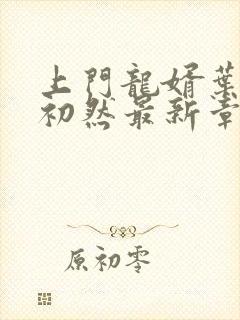 上門龍婿葉
初然最新章
原初零